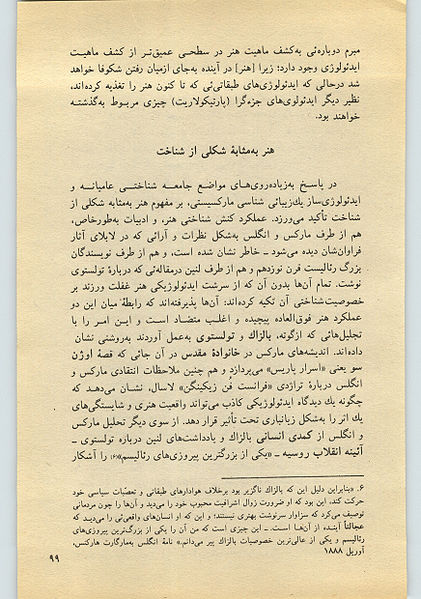 مبرم دوباره‌ئی به‌کشف ماهیت هنر در سطحـی عمیق‌تر از کشف ماهیت
ایدئولوژی وجود دارد؛ زیرا [هنر] در آینده به‌جای ازمیان رفتن شکوفا خواهد
شد درحالی که ایدئولوژی‌های طبقاتی‌ئی که تا کنون هنر را تغذیه کرده‌اند،
نظیر دیگر ایدئولوی‌های جزءگرا (پارتیکولاریت) چیزی مربوط به‌گذشتـه
خواهند بود.
هنر به‌مثابهٔ شکلی از شناخت
در پاسـخ به‌زیاده‌روی‌هـای مواضـع جامعـه شناختـی عامیانـه و
ایدئولوژی‌ساز یك‌زیبائی شناسی مارکسیستی، بر مفهوم هنر به‌مثابه شکلی از
شناخت تأکید می‌ورزد. عملکرد کنش شناختی هنر، و ادبیات به‌طورخاص،
هم از طرف مارکس و انگلس به‌شکل نظرات و آرائی که در لابلای آثار
فراوان‌شان دیده می‌شود ـ خاطر نشان شده است، و هم از طرف نویسندگان
بزرگ رئالیست قرن نوزدهم و هم از طرف لنین درمقاله‌ئی که دربارهٔ تولستوی
نوشت. تمام آن‌ها بدون آن که از سرشت ایدئولوژیکی هنر غفلت ورزند بر
خصوصیت‌شناختی آن تکیه کرده‌اند: آن‌ها پذیرفته‌اند که رابطهٔ میان این دو
عملکرد هنر فوق‌العاده پیچیده و اغلـب متضـاد اسـت و ایـن امـر را با
تجلیل‌هائی که ازگوته، بالزاك و تولستوی به‌عمل آوردند به‌روشنی نشان
داده‌اند. اندیشه‌های مارکس در خانوادهٔ مقدس در آن جائی که قصهٔ اوژن
سو یعنی «اسرار پاریس» می‌پردازد و هم چنین ملاحظات انتقادی مارکس و
انگلس دربارهٔ تراژدی «فرانست فُن زیکینگن» لاسال، نشان می‌دهـد که
چگونه یك دیدگاه ایدئولوژیکی کاذب می‌تواند واقعیت هنری و شایستگی‌های
یك اثر را به‌شکل زیانباری تحت تأثیر قرار دهد. از سوی دیگر تحلیل مارکس
و انگلس از کمدی انسانی بالزاك و یادداشت‌های لنین درباره تولستوی ـ
آئینه انقلاب روسیه ـ «یکی از بزرگترین پیروزی‌های رئالیسم»(۶) را آشکار
۶. «بنابراین دلیل این که بالزاك ناگزیر بود برخلاف هوادارهای طبقاتی و تعصّبات سیاسی خود
حرکت کند، این بود که او ضرورت زوال اشرافیت محبوب خود را می‌دید و آن‌ها را چون مردمانی
توصیف می‌کرد که سزاوار سرنوشت بهتری نیستند؛ و این که او انسان‌های واقعی‌ئی را می‌دیـد که
عجالتاً آینـده از آن‌هـا اسـت. ـ این چیزی است که من آن را یکی از بزرگ‌ترین پیروزی‌های
رئالیسم و یکی از عالی‌ترین خصوصیات بالزاك پیر می‌دانم.» نامهٔ انگلس به‌مارگارت هارکنس،
آوریل ۱۸۸۸
۹۹